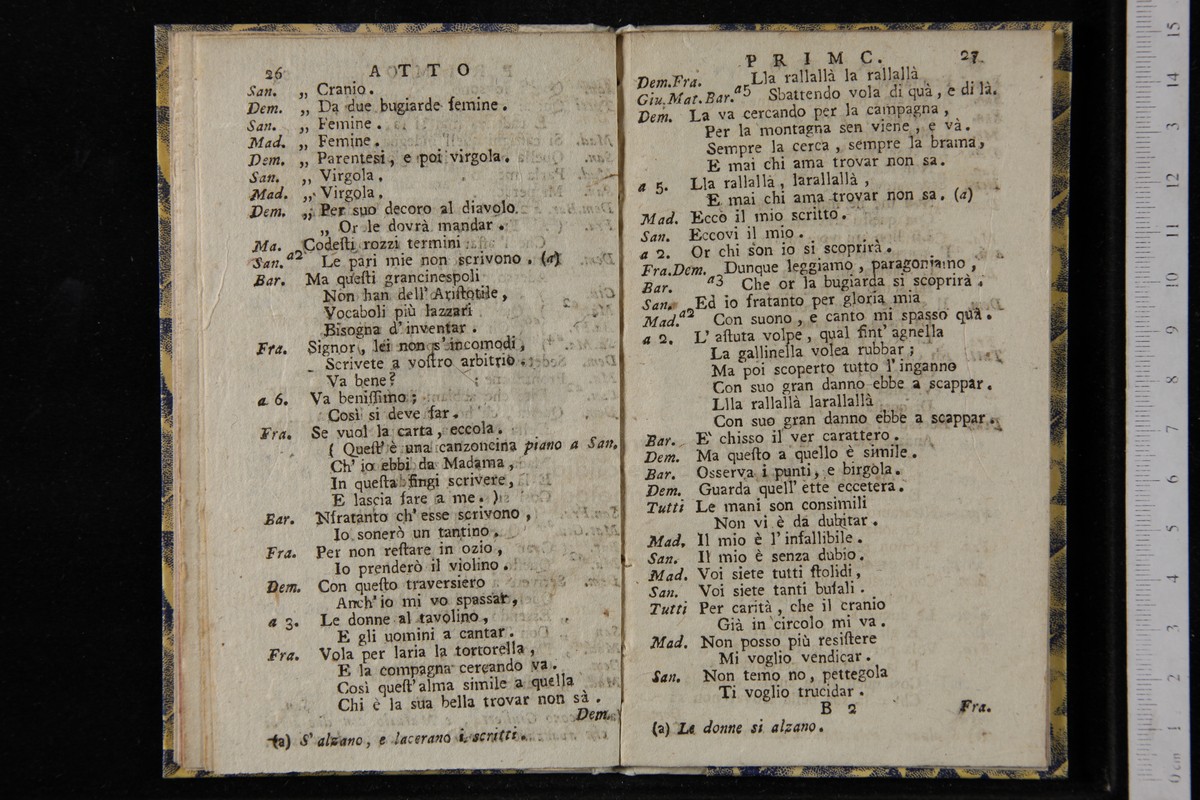 26 A T T O
San. „ Cranio.
Dem. „ Da due bugiarde femine.
San. „ Femine.
Mad. „ Femine.
Dem. „ Parentesi, e poi virgola.
San. „ Virgola,
Mad. „ Virgola.
Dem. „ Per suo decoro al diavolo.
„ Or le dovrà mandar.
Ma. Codeſti rozzi termini
San. a2 Le pari mie non scrivono. (a)
Bar. Ma queſti grancinespoli
Non han dell' Ariſtotile,
Vocaboli più lazzari
Bisogna d' inventar.
Fra. Signor, lei non s' incomodi,
Scrivete a voſtro arbitrio.
Va bene?
a 6. Va beniſſimo;
Così si deve far.
Fra. Se vuol la carta, eccola.
( Queſt' è una canzoncina piano a San.
Ch' io ebbi da Madama,
In queſta fingi scrivere,
E lascia fare a me. )
Bar. Nfratanto ch' esse scrivono,
Io sonerò un tantino.
Fra. Per non reſtare in ozio,
Io prenderò il violino.
Dem. Con queſto traversiero
Anch' io mi vo spassar,
a 3. Le donne al tavolino,
E gli uomini a cantar.
Fra. Vola per laria la tortorella,
E la compagna cercando va.
Così queſt' alma simile a quella
Chi è la sua bella trovar non sà.
Dem.
(a) S' alzano, e lacerano i scritti.
P R I M C. 27
Dem.Fra. Lla rallallà la rallallà
Giu.Mat.Bar. a5 Sbattendo vola di quà, e di là.
Dem. La va cercando per la campagna,
Per la montagna sen viene, e và.
Sempre la cerca, sempre la brama,
E mai chi ama trovar non sa.
a 5. Lla rallallà, larallallà,
E mai chi ama trovar non sa. (a)
Mad. Eccò il mio scritto.
San. Eccovi il mio.
a 2. Or chi son io si scoprirà.
Fra.Dem. Dunque leggiamo, paragoniamo,
Bar. a3 Che or la bugiarda si scoprirà.
San. Ed io fratanto per gloria mia
Mad. a2 Con suono, e canto mi spasso quà.
a 2. L' aſtuta volpe, qual fint' agnella
La gallinella volea rubbar;
Ma poi scoperto tutto l' inganno
Con suo gran danno ebbe a scappar.
Llla rallallà larallallà
Con suo gran danno ebbe a scappar.
Bar. E' chisso il ver carattero.
Dem. Ma queſto a quello è simile.
Bar. Osserva i punti, e birgola.
Dem. Guarda quell' ette eccetera.
Tutti Le mani son consimili
Non vi è da dubitar.
Mad. Il mio è l' infallibile.
San. Il mio è senza dubio.
Mad. Voi siete tutti ſtolidi,
San. Voi siete tanti bufali.
Tutti Per carità, che il cranio
Già in circolo mi va.
Mad. Non posso più resiſtere
Mi voglio vendicar.
San. Non temo no, pettegola
Ti voglio trucidar.
B 2 Fra.
(a) Le donne si alzano.
0 cm 1 2 3 4 5 6 7 8 9 10 11 12 13 14 15